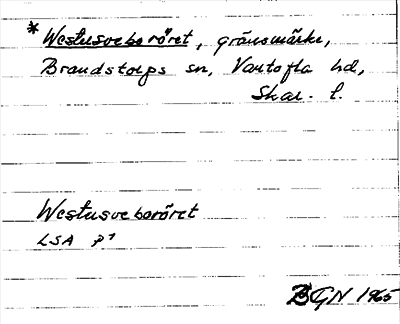 * Westusveboröret, gränsmärke,
Brandstorps sn, Vartofta hd,
Skar. l.
Westusveboröret
LSA P¹
BGN 1965